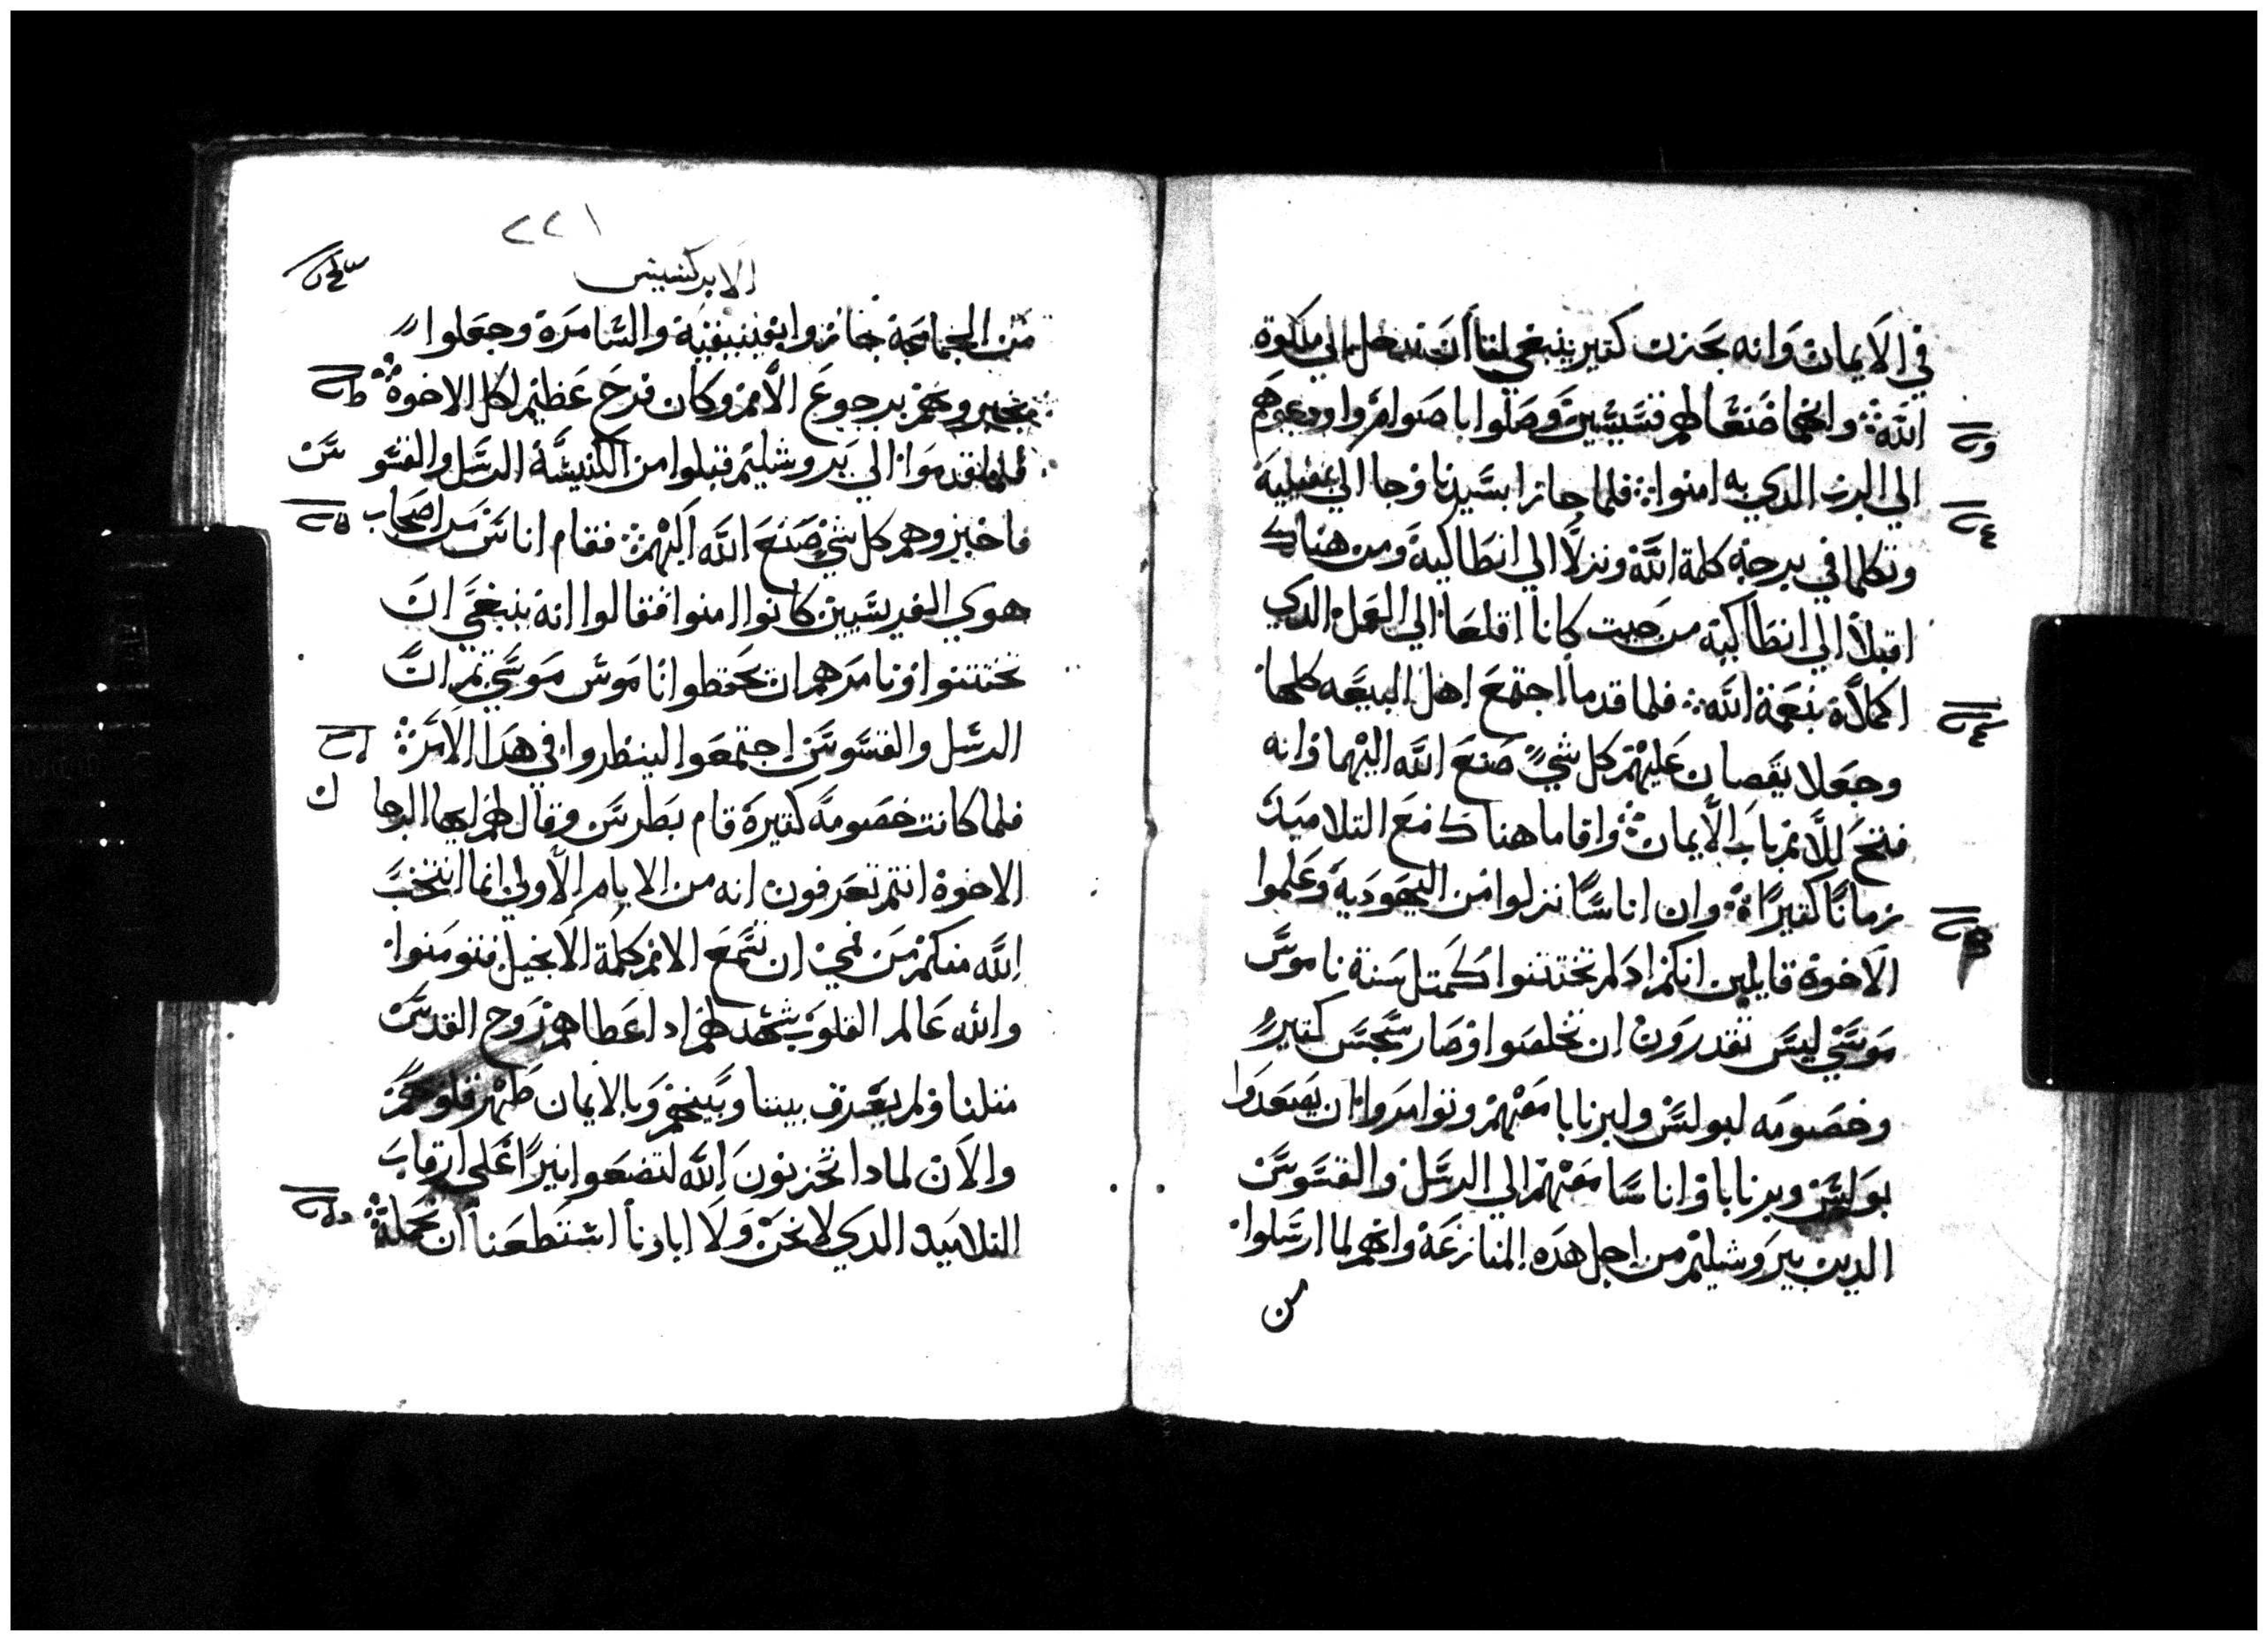 في الايمان وانه بحزن كتير ينبغي لنا ان ندخل الي ملكوة
الله وانهما ضنعا لهم قسيسين وصلوا باصوام وا ودعوهم
الي الرب الدي به امنوا فلما جازا بسيديا وجا الي بمفيلية
وتكلما في برجة كلمة الله ونزلا الي انطاكية ومن هناك
اقبلا الي انطاكية من حيت كانا اقلعا الي العمل الدي
اكملاة بنعمة الله فلما قدما اجتمع اهل البيعه كلها
وجعلا يقصان عليهم كل شي صنع الله اليهما وانه
فتح للامم باب الايمان واقاما هناك مع التلاميد
زمانا كتيرا وان اناسا نزلوا من اليهودية وعلموا
الاخوة قايلين انكم اد لم تختتنوا كمتل سنة ناموس
موسي ليس تقدرون ان تخلصوا وصار سجس كتير
وخصومه لبولس ولبرنابا معهم وتوامروا ان يصعدوا
بولس وبرنابا واناسا معهم الي الرسل والقسوس
الدين بيروشليم من اجل هده المنازعة وانهم لما ارسلوا
من
٢٢١
الابركسيس
من الجماعة جازوا بفينيقية والسامرة وجعلوا
يخبروهم برجوع الامم وكان فرح عظيم لكل الاخوة
فلما قدموا الي يروشليم قبلوا من الكنيسة الرسل والقسوس
فاخبروهم كل شي صنع الله اليهم فقام اناس من اصحاب
هوي الفريسيين كانوا امنوا فقالوا انه ينبغي ان
تختتنوا وتامرهم ان يحفظوا ناموس موسي تم ان
الرسل والقسوس اجتمعوا لينظروا في هدا الامر
فلما كانت خصومة كتيرة قام بطرس وقال لهم ايها الرجال
الاخوة انتم تعرفون انه من الايام الاولي انما انتخب
الله منكم من فمي ان تسمع الامم كلمة الانجيل فتومنوا
والله عالم القلوب شهد لهم اد اعطاهم روح القدس
متلنا ولم يفرق بيننا وبينهم وبالايمان طهر قلوبهم
والان لمادا تجربون الله لتضعوا نيرا على رقاب
التلاميد الدي لا نحن ولا اباونا استطعنا ان نحملة